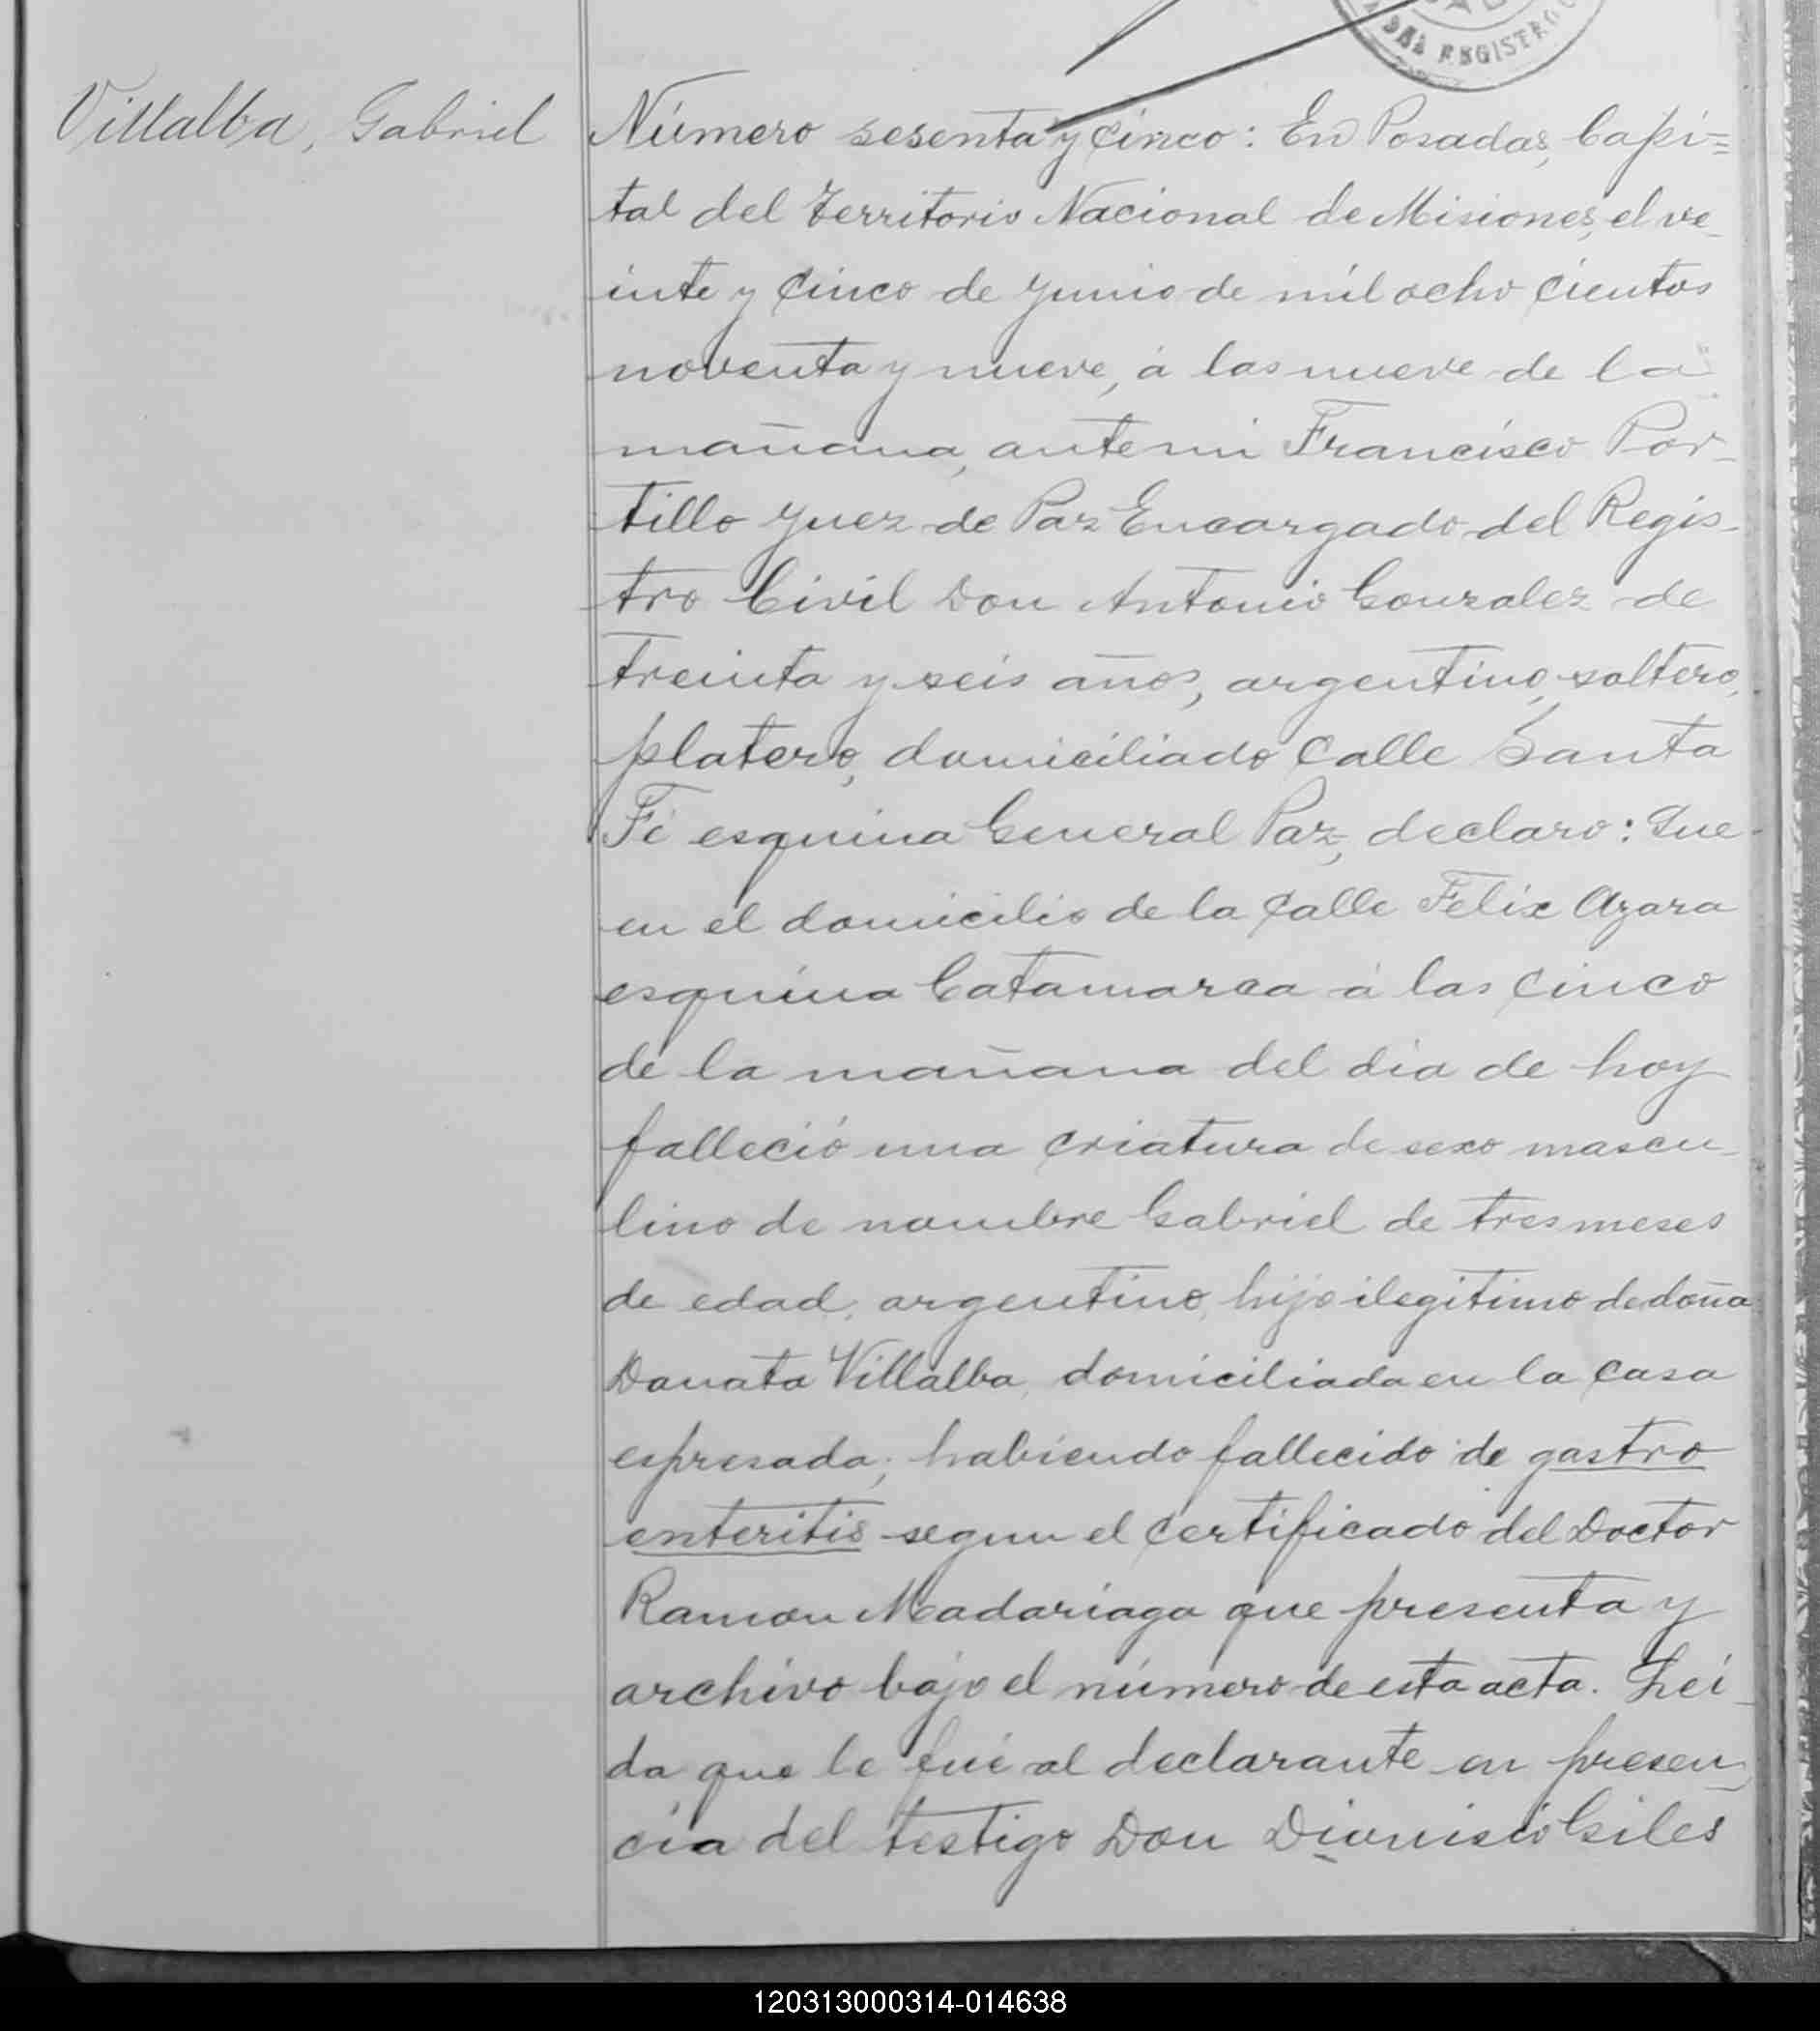 REGISTRO
Villalba, Gabriel
Número sesenta y cinco: En Posadas, Capi=
tal del Territorio Nacional de Misiones, el ve-
inte y cinco de Junio de mil ocho cientos
noventa y nueve, á las nueve de la
mañana, ante mi Francisco Por-
tillo Juez de Paz Encargado del Regis-
tro Civil Don Antonio Gonzalez de
treinta y seis años, argentino, soltero,
platero, domiciliado calle Santa
Fé esquina General Paz, declaro: Que
en el domicilio de la calle Felix Azara
esquina Catamarca á las cinco
de la mañana del dia de hoy
falleció una criatura de sexo mascu-
lino de nombre Gabriel de tres meses
de edad, argentino, hijo ilegitimo de doña
Donata Villalba, domiciliada en la casa
espresada; habiendo fallecido de gastro
enteritis segun el certificado del Doctor
Ramon Madariaga que presenta y
archivo bajo el número de esta acta. Lei-
da que le fué al declarante en presen-
cia del testigo Don Dionisio Giles
120313000314-014638